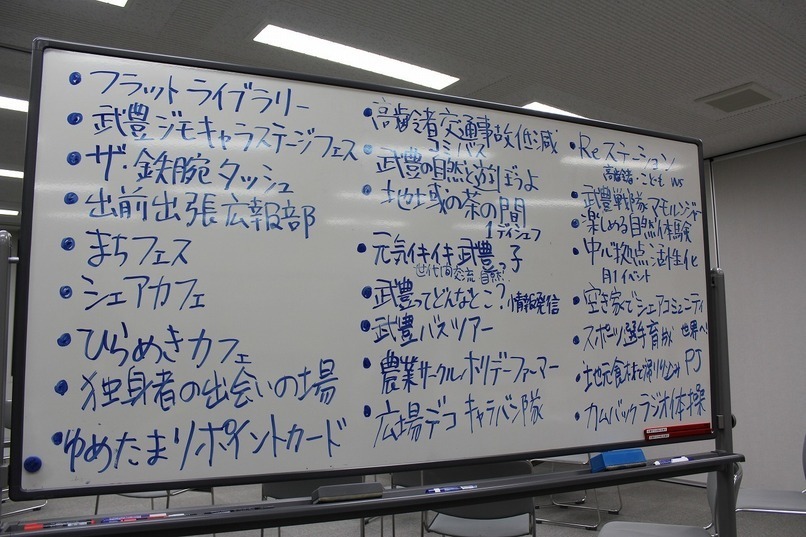 フラットライブラリー
武豊ジモキャラステージフェス
ザ・鉄腕タッシュ
出前出張広報部
まちフェス
シェアカフェ
ひらめきカフェ
独身者の出会いの場
ゆめたまりポイントカード
高齢者交通事故低減
コミバス
武豊の自然とあそぼうよ
地域の茶の間
1デイシェフ
元気イキイキ武豊っ子
世代間交流 自然?
武豊ってどんなとこ?情報発信
武豊バスツアー
農業サークル ホリデーファーマー
広場デコ キャラバン隊
Reステーション
高齢者・こども
武豊戦隊マモルンジャー
楽しめる自然体験
中心拠点活性化
月1イベント
空き家でシェアコミュニティ
スポーツ選手育成 世界へ!
地元食材で滑り込み PJ
カムバックラジオ体操